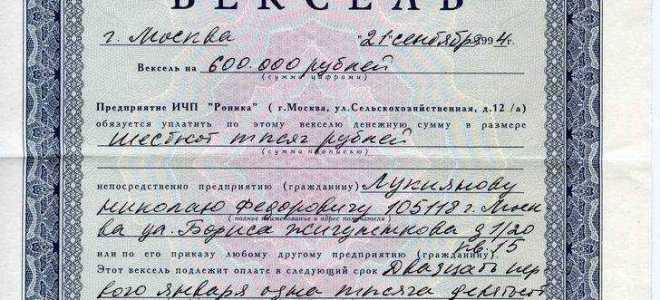 ВЕКСЕЛЬ
г. Москва "21" сентября 1994 г.
Вексель на 600.000 рублей
(сумма цифрами)
Предприятие ИЧП "Роника" ( г.Москва, ул.Сельскохозяйственная, д.12 /а)
обязуется уплатить по этому векселю денежную сумму в размере
Шестьсот тысяч рублей
(сумма прописью)
непосредственно предприятию (гражданину) Лукиянову
Николаю Федоровичу 105118 г. Моск
(полное наименование и адрес получателя)
ва ул. Бориса Жигуленкова д 1/20
кв. 15
или по его приказу любому другому предприятию (гражданину).
Этот вексель подлежит оплате в следующий срок Двадцать пер
вого января одна тысяча девятьсот